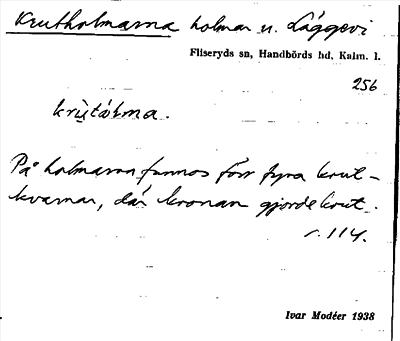 Krutholmarna holmar u. Läggevi
Fliseryds sn, Handbörds hd, Kalm. l.
256
krùtálma.
På holmarna funnos förr fyra krut-
kvarnar, där kronan gjorde krut.
r. 114.
Ivar Modéer 1938